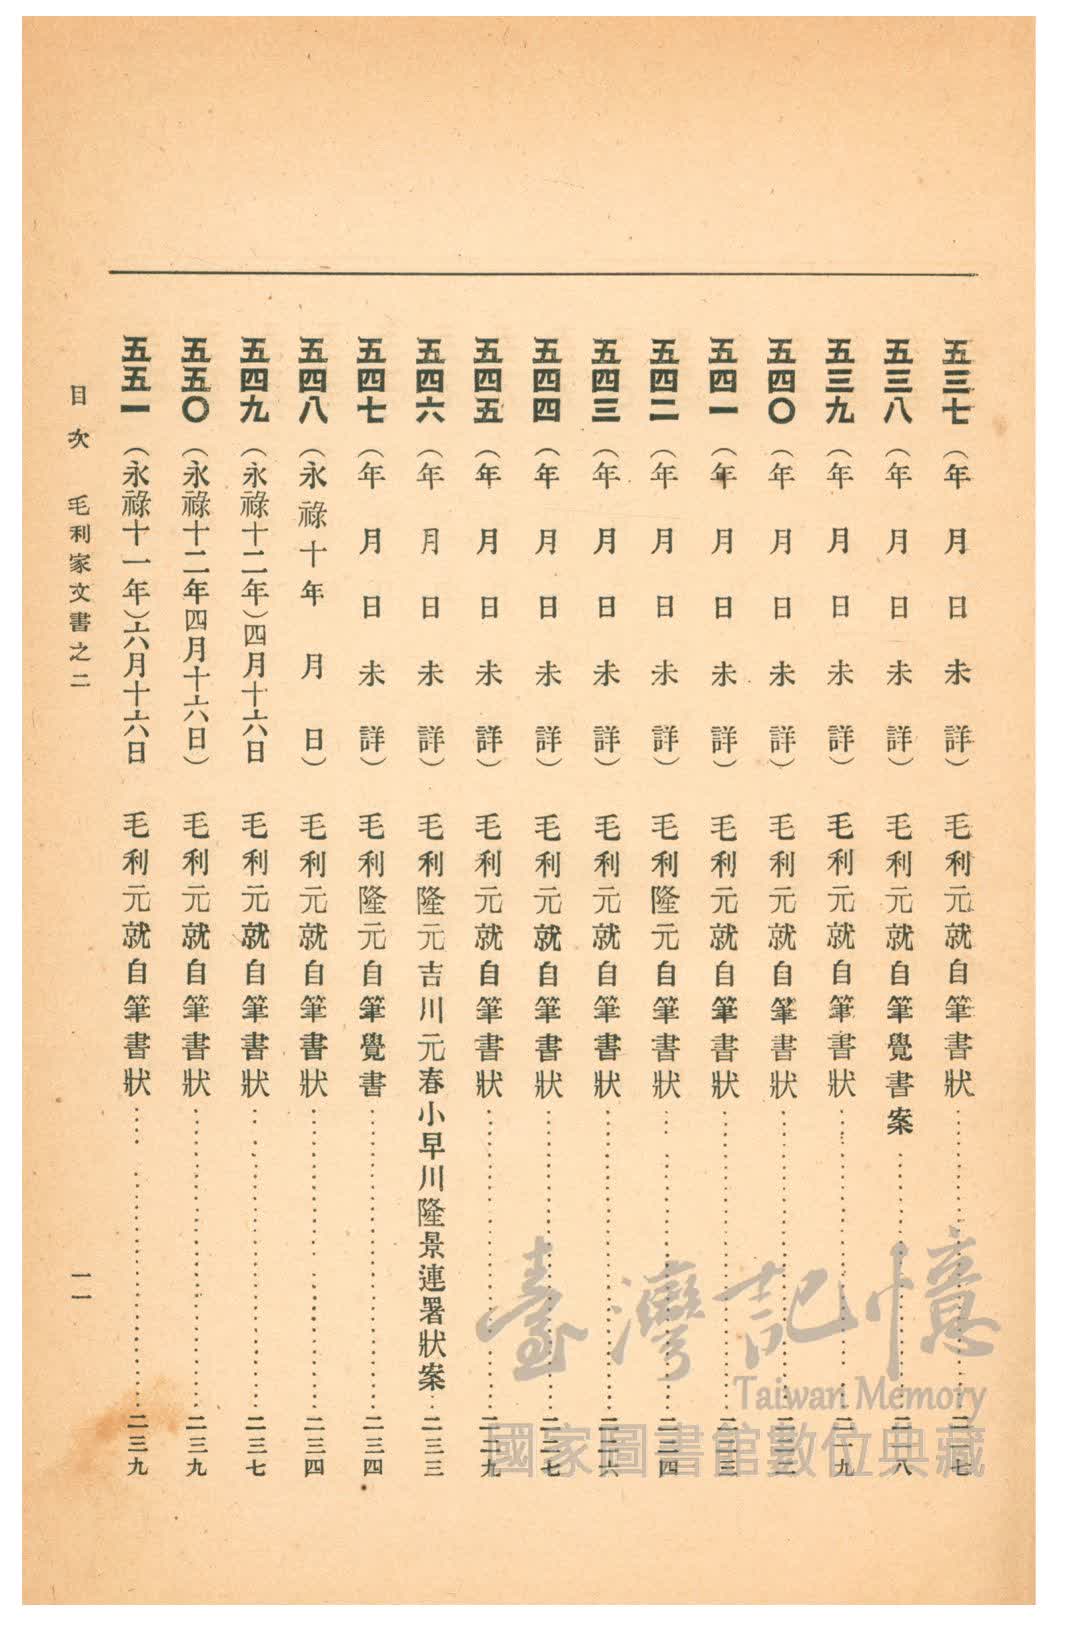 五三七 (年月日未詳) 毛利元就自筆書状 二一七
五三八 (年月日未詳) 毛利元就自筆覺書案 二一八
五三九 (年月日未詳) 毛利元就自筆書状 二一九
五四〇 (年月日未詳) 毛利元就自筆書状
五四一 (年月日未詳) 毛利元就自筆書状 二二三
五四二 (年月日未詳) 毛利隆元自筆書状 二二四
五四三 (年月日未詳) 毛利元就自筆書状 二二六
五四四 (年月日未詳) 毛利元就自筆書状 二二七
五四五 (年月日未詳) 毛利元就自筆書状 二二九
五四六 (年月日未詳) 毛利隆元吉川元春小早川隆景連署状案 二三三
五四七 (年月日未詳) 毛利隆元自筆覺書 二三四
五四八 (永祿十年月日) 毛利元就自筆書状 二三四
五四九 (永祿十二年)四月十六日 毛利元就自筆書状 二三七
五五〇 (永祿十二年四月十六日) 毛利元就自筆書状 二三九
五五一 (永祿十一年)六月十六日 毛利元就自筆書状 二三九
目次 毛利家文書之二 一一
臺灣記憶
Taiwan Memory
國家圖書館數位典藏